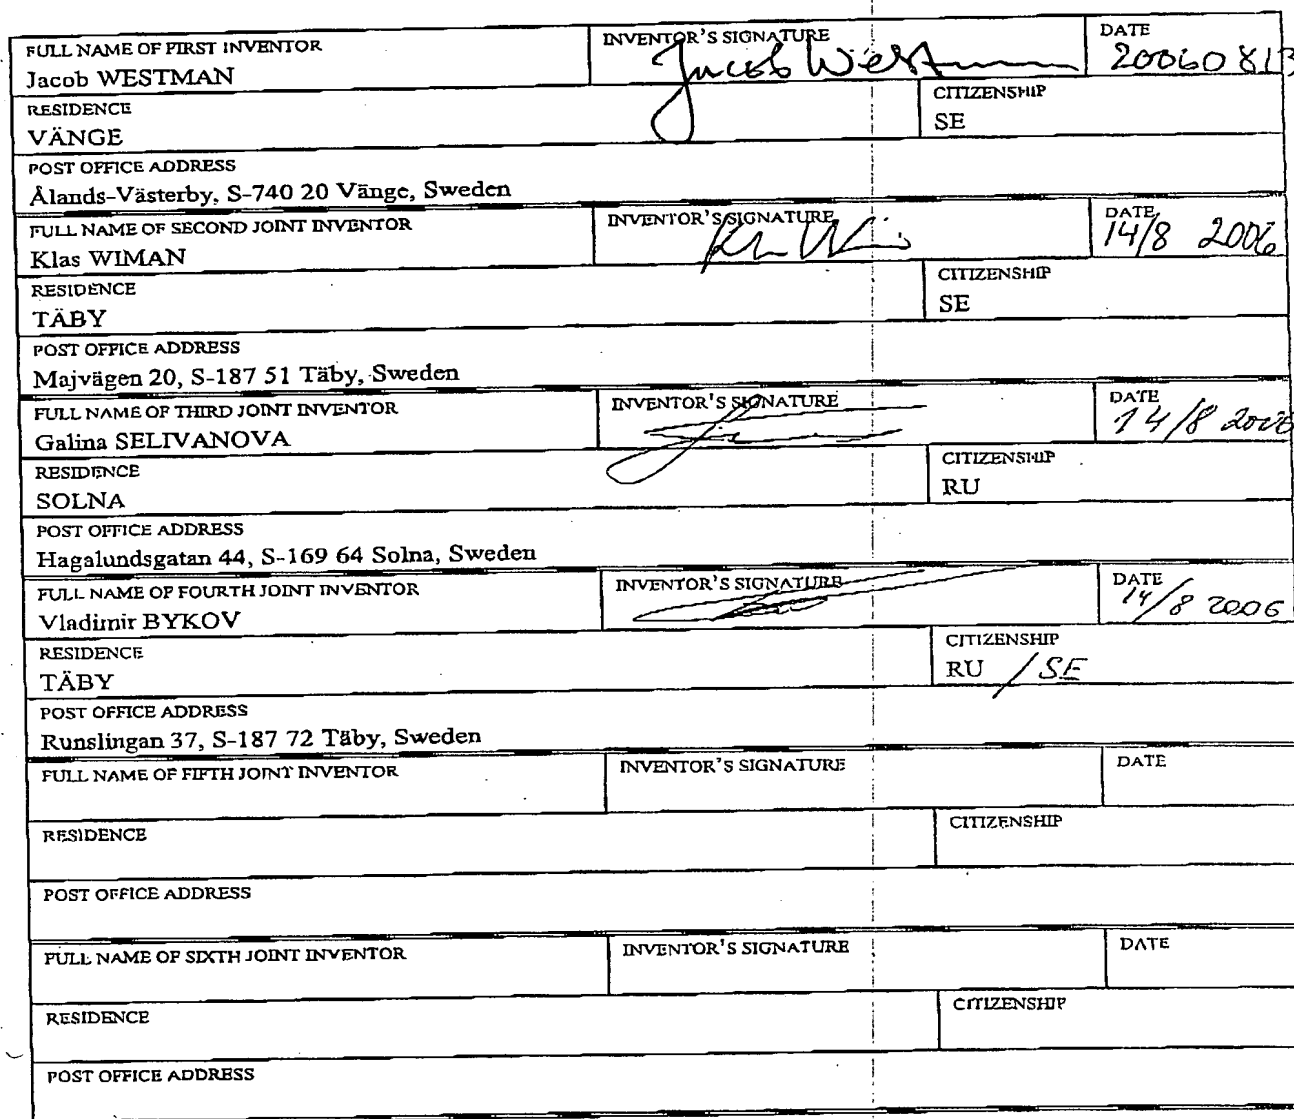 FULL NAME OF FIRST INVENTOR INVENTOR'S SIGNATURE DATE
Jacob WESTMAN Jacob Westman 20060813
RESIDENCE CITIZENSHIP
VÄNGE SE
POST OFFICE ADDRESS
Ålands-Västerby, S-740 20 Vänge, Sweden
FULL NAME OF SECOND JOINT INVENTOR INVENTOR'S SIGNATURE DATE
Klas WIMAN 14/8 2006
RESIDENCE CITIZENSHIP
TÄBY SE
POST OFFICE ADDRESS
Majvägen 20, S-187 51 Täby, Sweden
FULL NAME OF THIRD JOINT INVENTOR INVENTOR'S SIGNATURE DATE
Galina SELIVANOVA 14/8 2006
RESIDENCE CITIZENSHIP
SOLNA RU
POST OFFICE ADDRESS
Hagalundsgatan 44, S-169 64 Solna, Sweden
FULL NAME OF FOURTH JOINT INVENTOR INVENTOR'S SIGNATURE DATE
Vladimir BYKOV 14/8 2006
RESIDENCE CITIZENSHIP
TÄBY RU / SE
POST OFFICE ADDRESS
Runslingan 37, S-187 72 Täby, Sweden
FULL NAME OF FIFTH JOINT INVENTOR INVENTOR'S SIGNATURE DATE
RESIDENCE CITIZENSHIP
POST OFFICE ADDRESS
FULL NAME OF SIXTH JOINT INVENTOR INVENTOR'S SIGNATURE DATE
RESIDENCE CITIZENSHIP
POST OFFICE ADDRESS